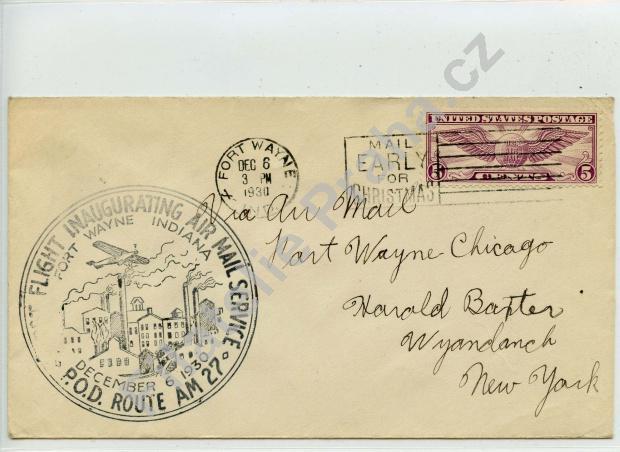 UNITED STATES POSTAGE
5 CENTS 5
FORT WAYNE
DEC 6
3 PM
1930
MAIL
EARLY
FOR
CHRISTMAS
FLIGHT INAUGURATING AIR MAIL SERVICE
FORT WAYNE INDIANA
DECEMBER 6 1930
P.O.D. ROUTE AM 27
Via Air Mail
Fort Wayne-Chicago
Harold Baxter
Wyandanch
New York
Praha.cz